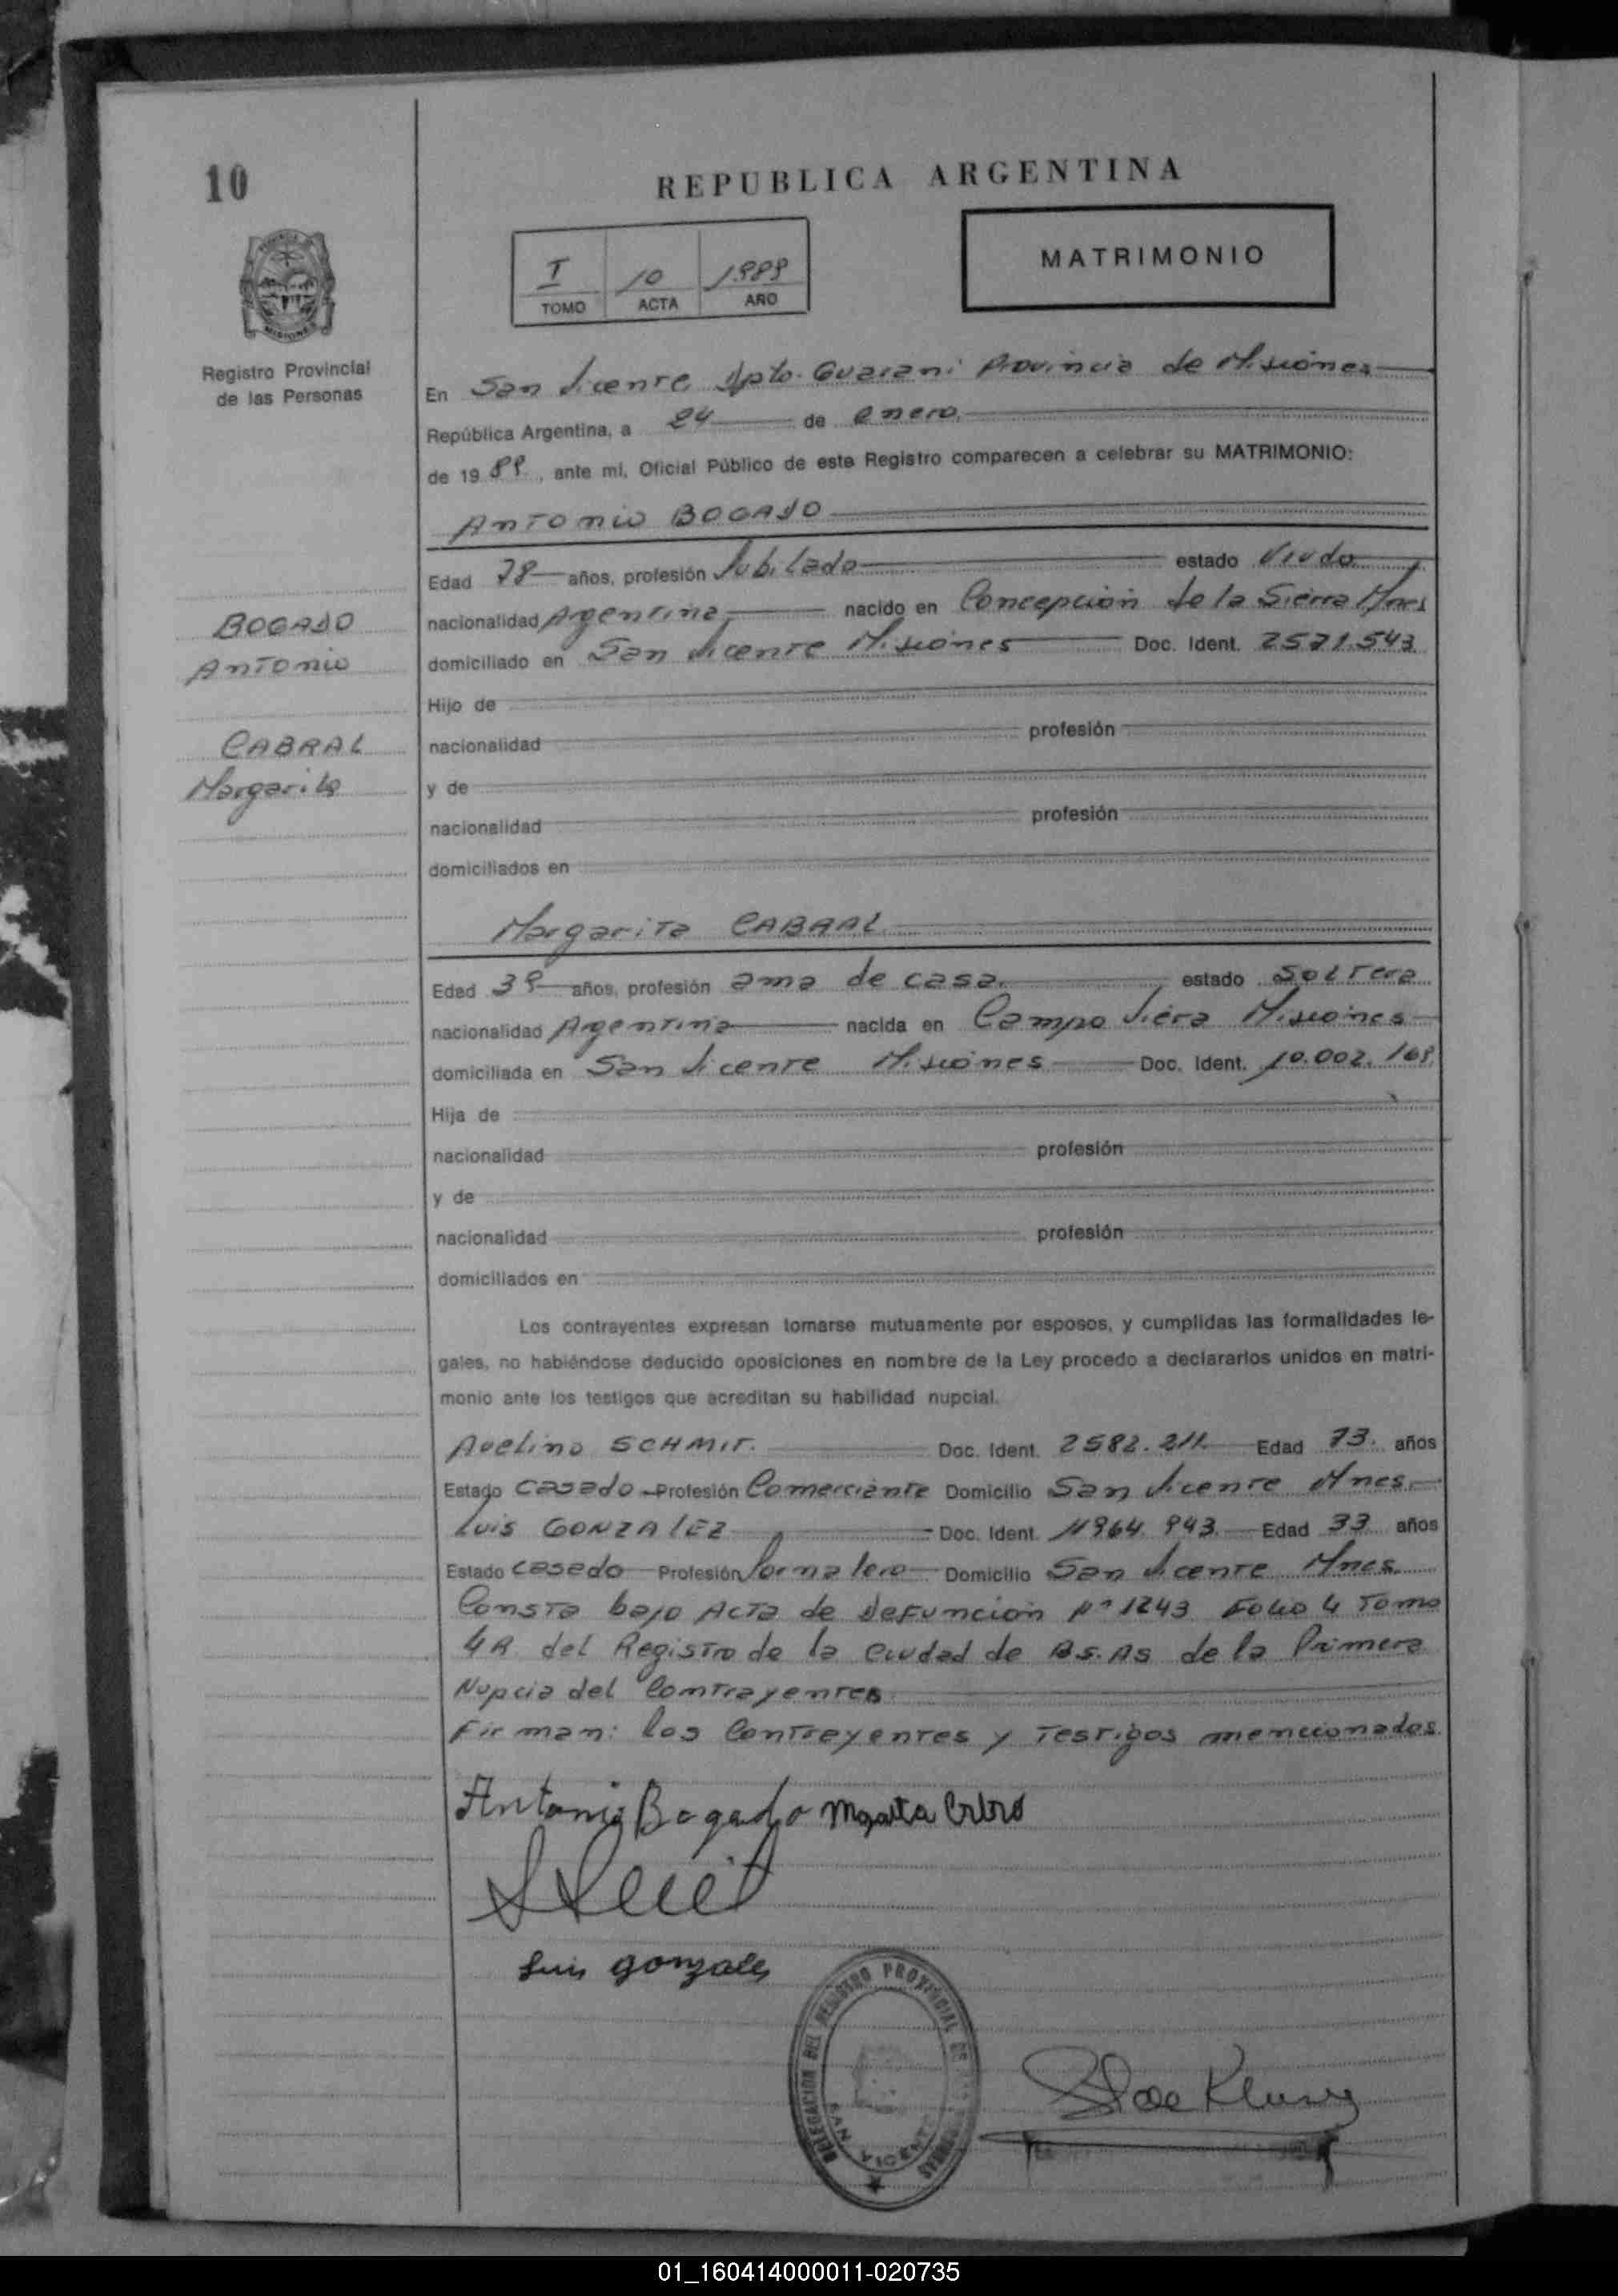 10
REPUBLICA ARGENTINA
I 10 1989
TOMO ACTA AÑO
MATRIMONIO
Registro Provincial
de las Personas
En San Vicente Dpto. Guarani Provincia de Misiones
República Argentina, a 24 de enero.
de 19 89, ante mí, Oficial Público de este Registro comparecen a celebrar su MATRIMONIO:
ANTONIO BOGADO
Edad 78 años, profesión Jubilado estado Viudo
nacionalidad Argentina nacido en Concepción de la Sierra Mnes
domiciliado en San Vicente Misiones Doc. Ident. 2521.543
Hijo de
nacionalidad profesión
y de
nacionalidad profesión
domiciliados en
BOGADO
ANTONIO
CABRAL
Margarita
Margarita CABRAL
Edad 39 años, profesión ama de casa. estado Soltera
nacionalidad Argentina nacida en Campo Viera Misiones
domiciliada en San Vicente Misiones Doc. Ident. 10.002.168
Hija de
nacionalidad profesión
y de
nacionalidad profesión
domiciliados en
Los contrayentes expresan tomarse mutuamente por esposos, y cumplidas las formalidades le-
gales, no habiéndose deducido oposiciones en nombre de la Ley procedo a declararlos unidos en matri-
monio ante los testigos que acreditan su habilidad nupcial.
Avelino SCHMIT. Doc. Ident. 2582.211 Edad 73. años
Estado Casado Profesión Comerciante Domicilio San Vicente Mnes.
Luis GONZALEZ Doc. Ident. 11964.943. Edad 33 años
Estado Casado Profesión Jornalero Domicilio San Vicente Mnes.
Consta bajo Acta de Defuncion Nº 1243 Folio 4 Tomo
4A del Registro de la Ciudad de Bs.As de la Primera
Nupcia del Contrayentes
Firman: los Contrayentes y Testigos mencionados.
Antonio Bogado
Luis gonzales
DELEGACION DEL REGISTRO PROVINCIAL DE LAS PERSONAS
SAN VICENTE
01_160414000011-020735